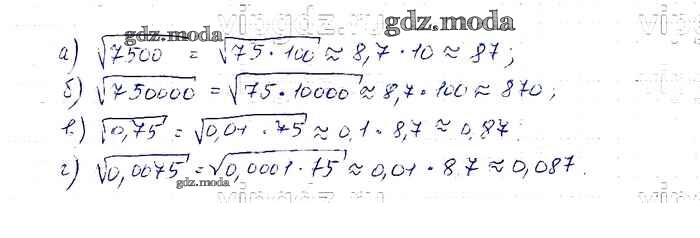 gdz.moda
а) √7500 = √75·100 ≈ 8,7·10 ≈ 87;
б) √750000 = √75·10000 ≈ 8,7·100 ≈ 870;
в) √0,75 = √0,01·75 ≈ 0,1·8,7 ≈ 0,87;
г) √0,0075 = √0,0001·75 ≈ 0,01·8,7 ≈ 0,087.
gdz.moda